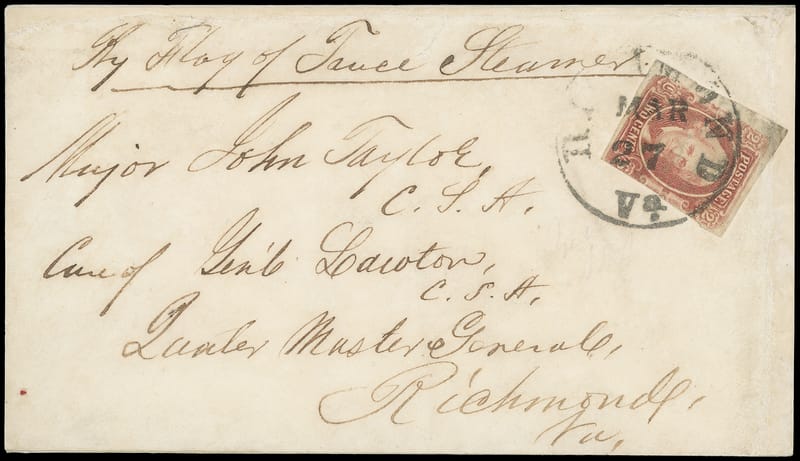 By Flag of Truce Steamer.
Major John Tayloe,
C. S. A.
Care of Gen'l Lawton,
C. S. A.
Quarter Master General,
Richmond,
Va.
RICHMOND
MAR
7
Va.
TWO CENTS
POSTAGE